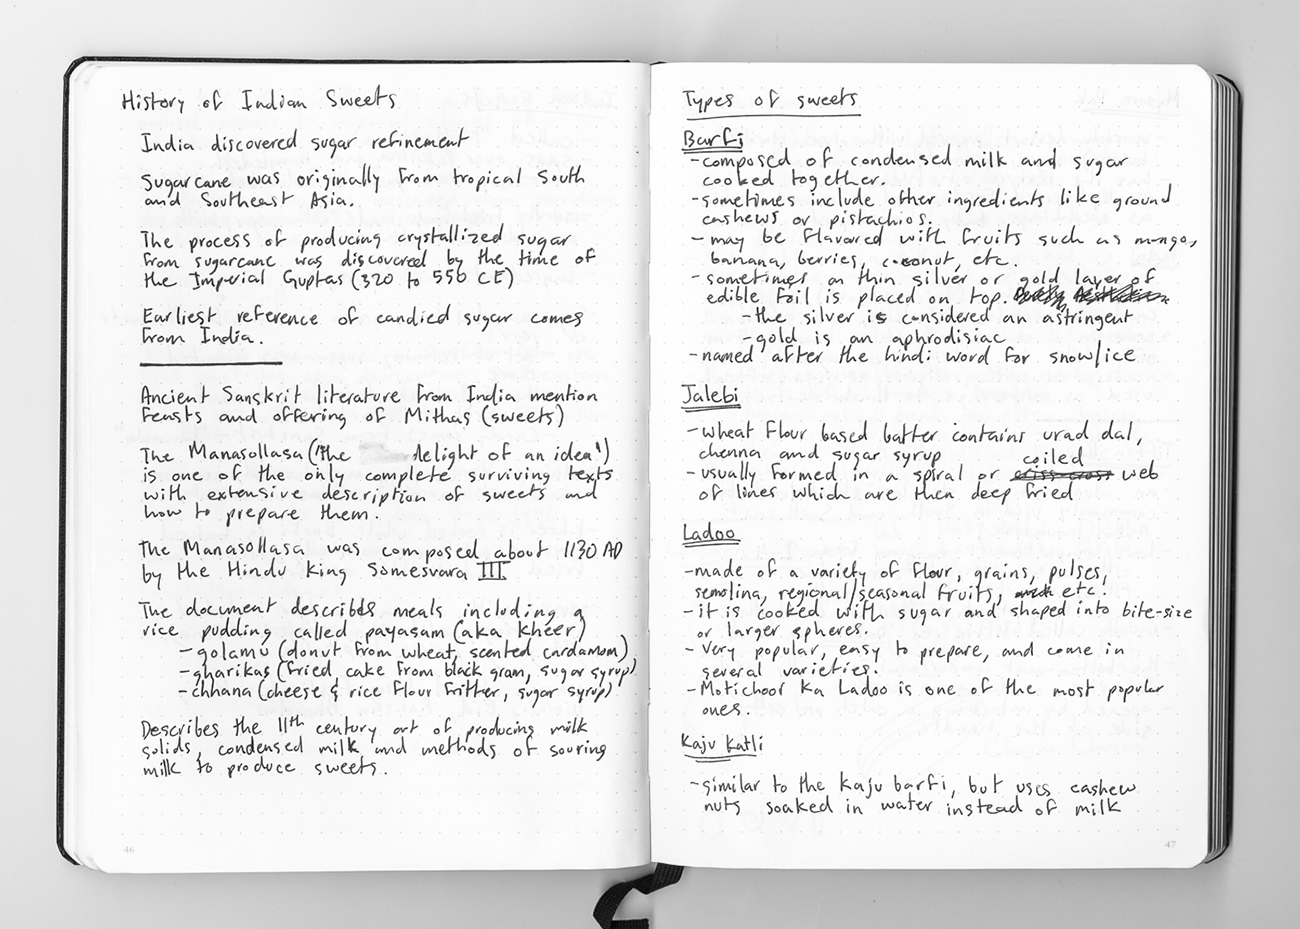 History of Indian Sweets
India discovered sugar refinement
Sugarcane was originally from tropical South
and Southeast Asia.
The process of producing crystallized sugar
from sugarcane was discovered by the time of
the Imperial Guptas (320 to 550 CE)
Earliest reference of candied sugar comes
from India.
Ancient Sanskrit literature from India mention
feasts and offering of Mithas (sweets)
The Manasollasa ("The delight of an idea")
is one of the only complete surviving texts
with extensive description of sweets and
how to prepare them.
The Manasollasa was composed about 1130 AD
by the Hindu King Somesvara III.
The document describes meals including a
rice pudding called payasam (aka kheer)
- golamu (donut from wheat, scented cardamom)
- gharikas (fried, cake from black gram, sugar syrup)
- chhana (cheese & rice flour fritter, sugar syrup)
Describes the 11th century art of producing milk
solids, condensed milk and methods of souring
milk to produce sweets.
46
Types of sweets
Barfi
- composed of condensed milk and sugar
cooked together.
- sometimes include other ingredients like ground
cashews or pistachios.
- may be flavored with fruits such as mango,
banana, berries, coconut, etc.
- sometimes a thin silver or gold layer of
edible foil is placed on top.
- the silver is considered an astringent
- gold is an aphrodisiac
- named after the hindi word for snow/ice
Jalebi
- wheat flour based batter contains urad dal,
chenna and sugar syrup
- usually formed in a spiral or coiled web
of lines which are then deep fried
Ladoo
- made of a variety of flour, grains, pulses,
semolina, regional/seasonal fruits, etc.
- it is cooked with sugar and shaped into bite-size
or larger spheres.
- Very popular, easy to prepare, and come in
several varieties.
- Motichoor Ka Ladoo is one of the most popular
ones.
Kaju Katli
- similar to the kaju barfi, but uses cashew
nuts soaked in water instead of milk
47